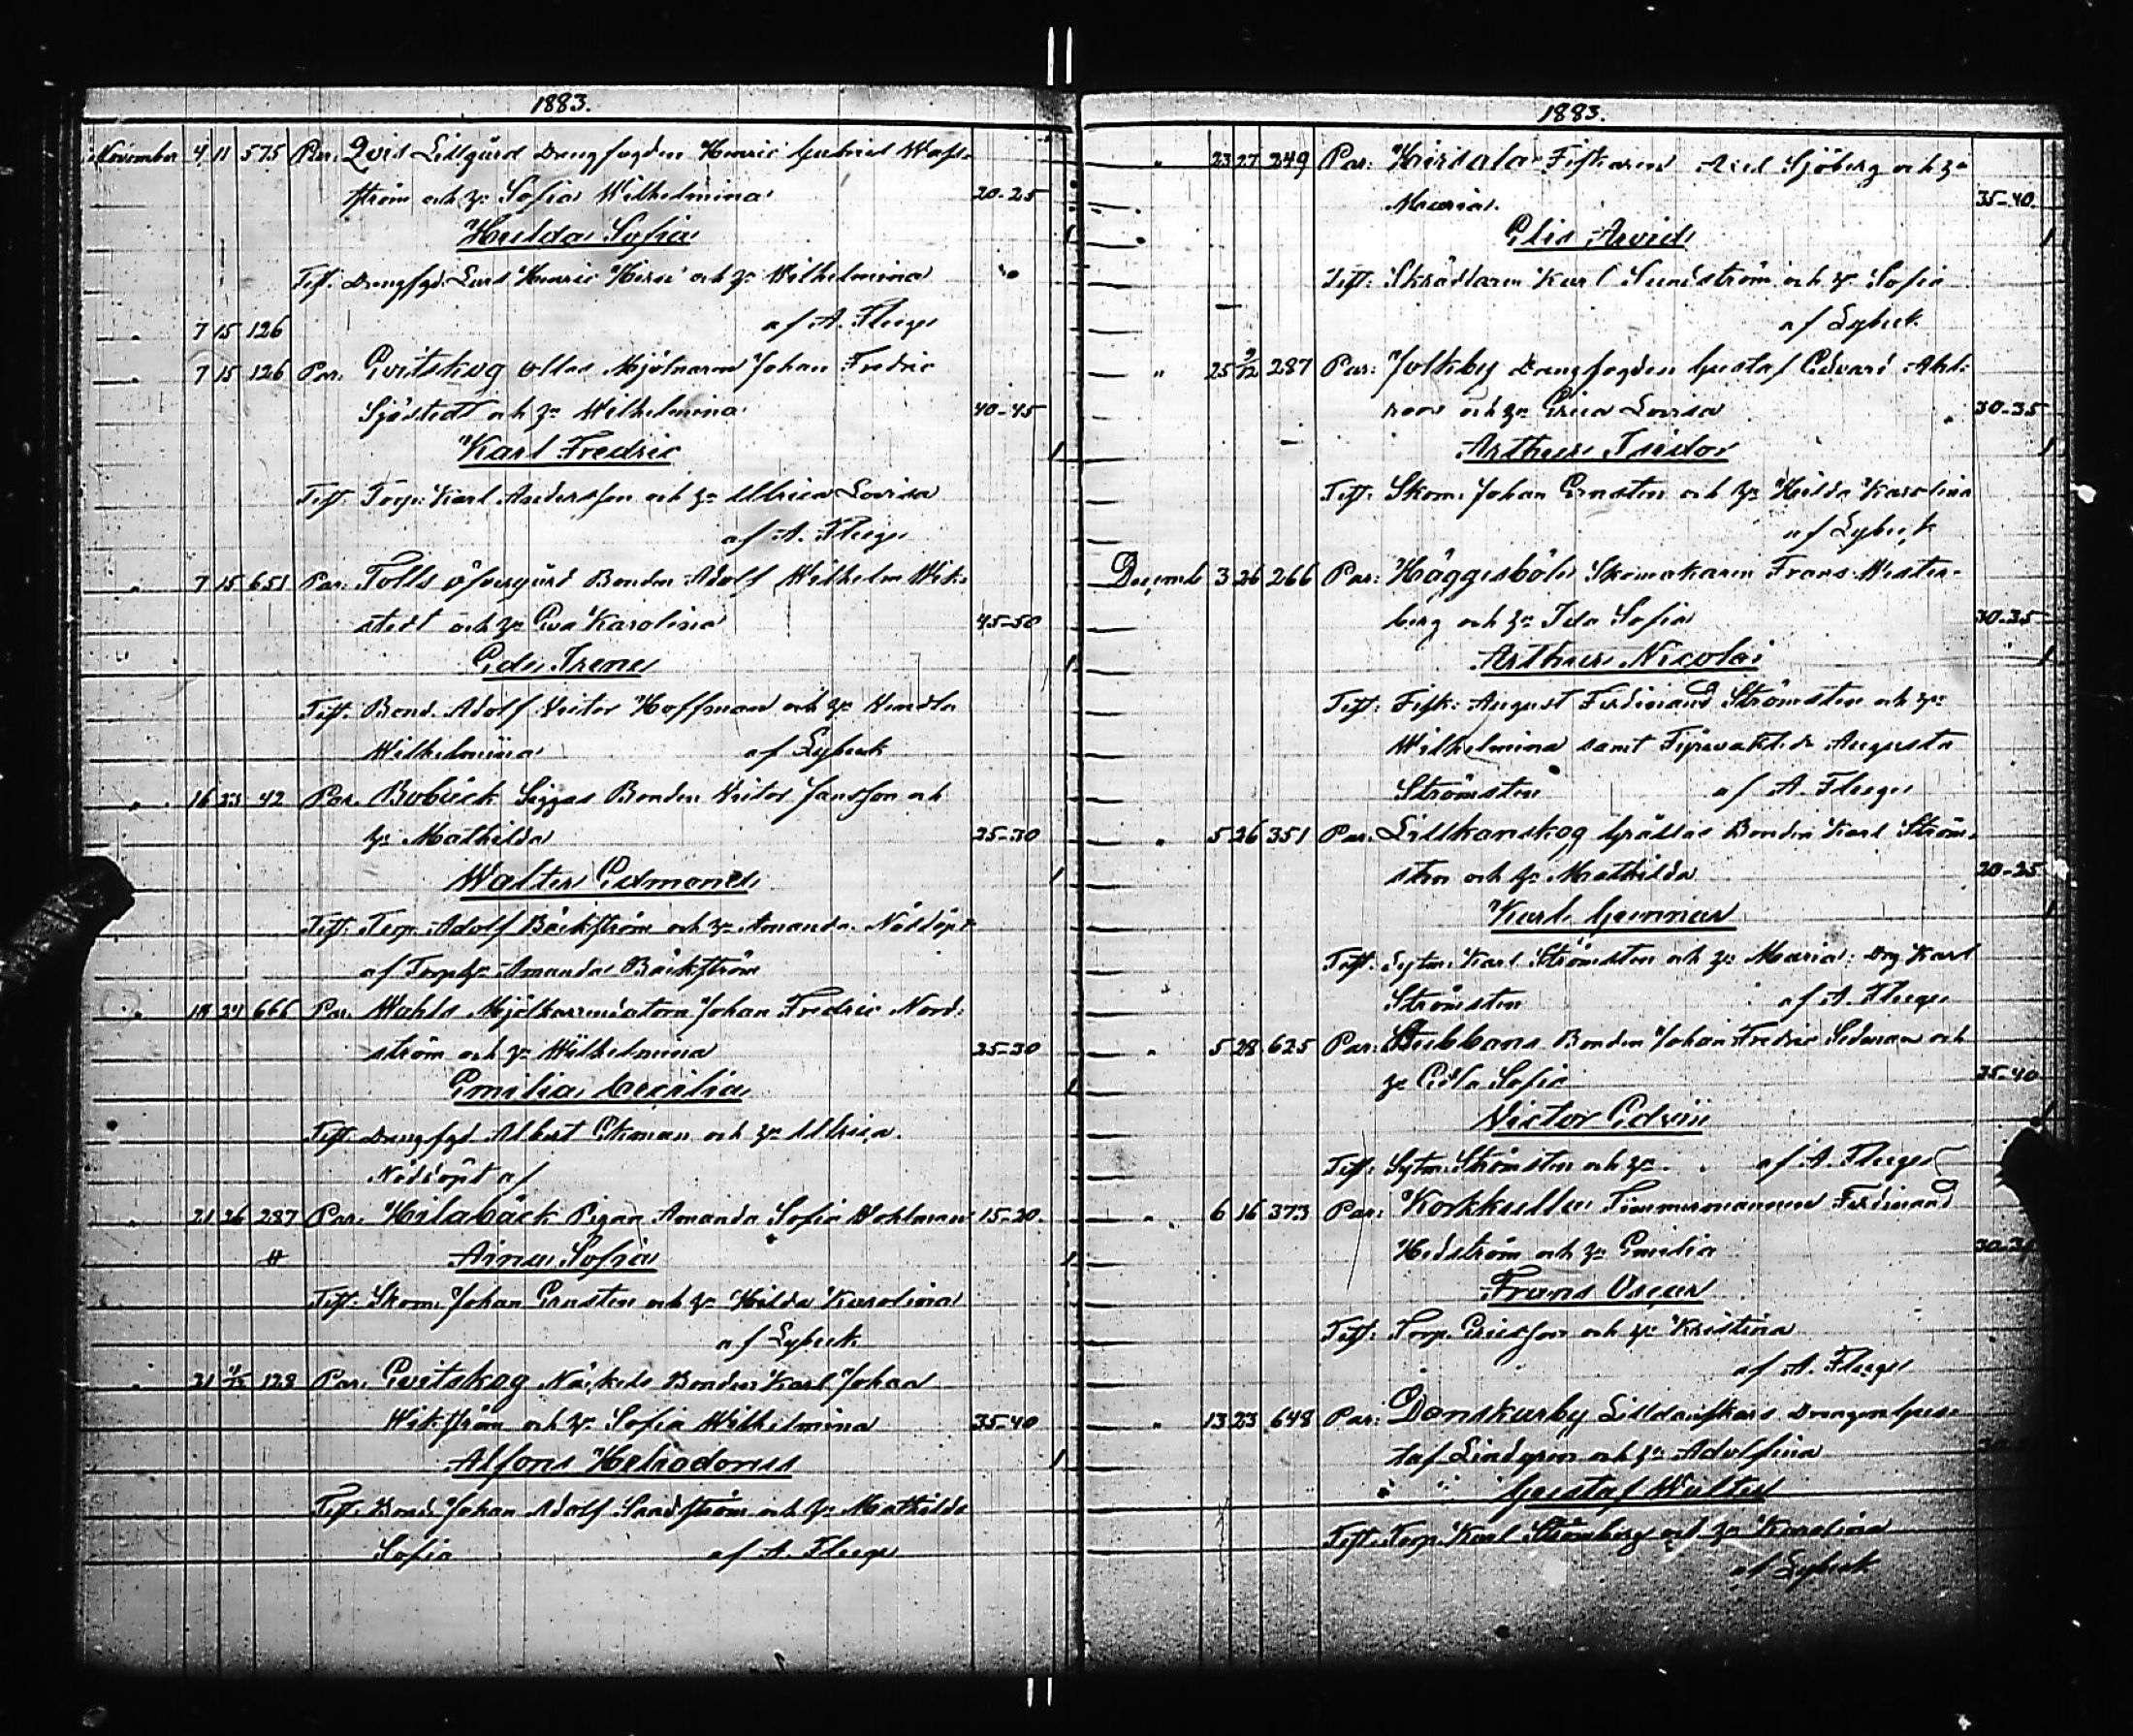 1883.
November 4 11 575 Par: Qvis Lillgård Drengfogden Henric Gabriel
ström och h:u Sofia Wilhelmina 20-25
Hulda Sofia
Test: Drengfgd. Lars Henric och h:u Wilhelmina
7 15 126 af A. Fleege
" 7 15 126 Par: Evitskog Ollas Mjölnaren Johan Fredric
Sjöstedt och h:u Wilhelmina 40-45
Karl Fredric
Test: Torp: Karl Andersson och h:u Ulrica Lovisa
af A. Fleege
" 7 15 651 Par: Tolls Öfvergård Bonden Adolf Wilhelm Wik-
stedt och h:u Eva Karolina 45-50
Edit Irene
Test: Bond. Adolf Victor Hoffman och h:u Wendla
Wilhelmina af Lybeck
" 16 23 42 Par: Bobäck Siggas Bonden Victor Jansson och
h:u Mathilda 25-30
Walter Edmond
Test: Torp. Adolf Bäckström och h:u Amanda. Nöddöpt
af Torp h:u Amanda Bäckström
" 19 27 666 Par: Wahls Mjölkarrendatorn Johan Fredric Nord-
ström och h:u Wilhelmina 25-30
Emilia Cecilia
Test: Drengfgd Albert Ekman och h:u Ulrica.
Nöddöpt af
" 21 26 287 Par: Hilabäck Pigan Amanda Sofia Wohlman 15-20.
# Aina Sofia
Test: Skom. Johan Ernsten och h:u Hilda Karolina
af Lybeck
" 21 128 Par: Evitskog Näkels Bonden Karl Johan
Wikström och h:u Sofia Wilhelmina 35-40
Alfons Heliodorus
Test: Bond. Johan Adolf Sandström och h:u Mathilda
Sofia af A. Fleege
1883.
" 23 27 249 Par: Fiskaren Axel Sjöberg och h:u
Maria. 35-40
Elis Arvid
Test: Skräddaren Karl Sundström och h:u Sofia
af Lybeck
" 25 9/12 287 Par: Jolkby Drengfogden Gustaf Edvard Ahl-
roos och h:u Erica Lovisa 30-35
Arthur Isidor
Test: Skom. Johan Ernsten och h:u Hilda Karolina
af Lybeck
Decemb 3 26 266 Par: Häggesböle Skomakaren Frans Wester-
berg och h:u Ida Sofia 30-35
Arthur Nicolai
Test: Fisk: August Ferdinand Strömsten och h:u
Wilhelmina samt Augusta
Strömsten af A. Fleege
" 5 26 351 Par: Lillkanskog Grällas Bonden Karl Ström-
sten och h:u Mathilda 20-25
Karl Gunnar
Test: Sytm: Karl Strömsten och h:u Maria: Dng Karl
Strömsten af A. Fleege
" 5 28 625 Par: Stubbans Bonden Johan Fredric Sedman och
h:u Edla Sofia 35-40
Victor Edvin
Test: Sytm: Strömsten och h:u af A. Fleege
" 6 16 373 Par: Korkkulla Timmermannen Ferdinand
Hedström och h:u Emilia
Frans Oscar
Test: Torp. Ericsson och h:u Kristina
af A. Fleege
" 13 23 648 Par: Danskarby Lilldanskars Drengen Gus-
taf Lindgren och h:u Adolfina
Gustaf Walter
Test: Torp. Karl Strömberg och h:u Karolina
af Lybeck